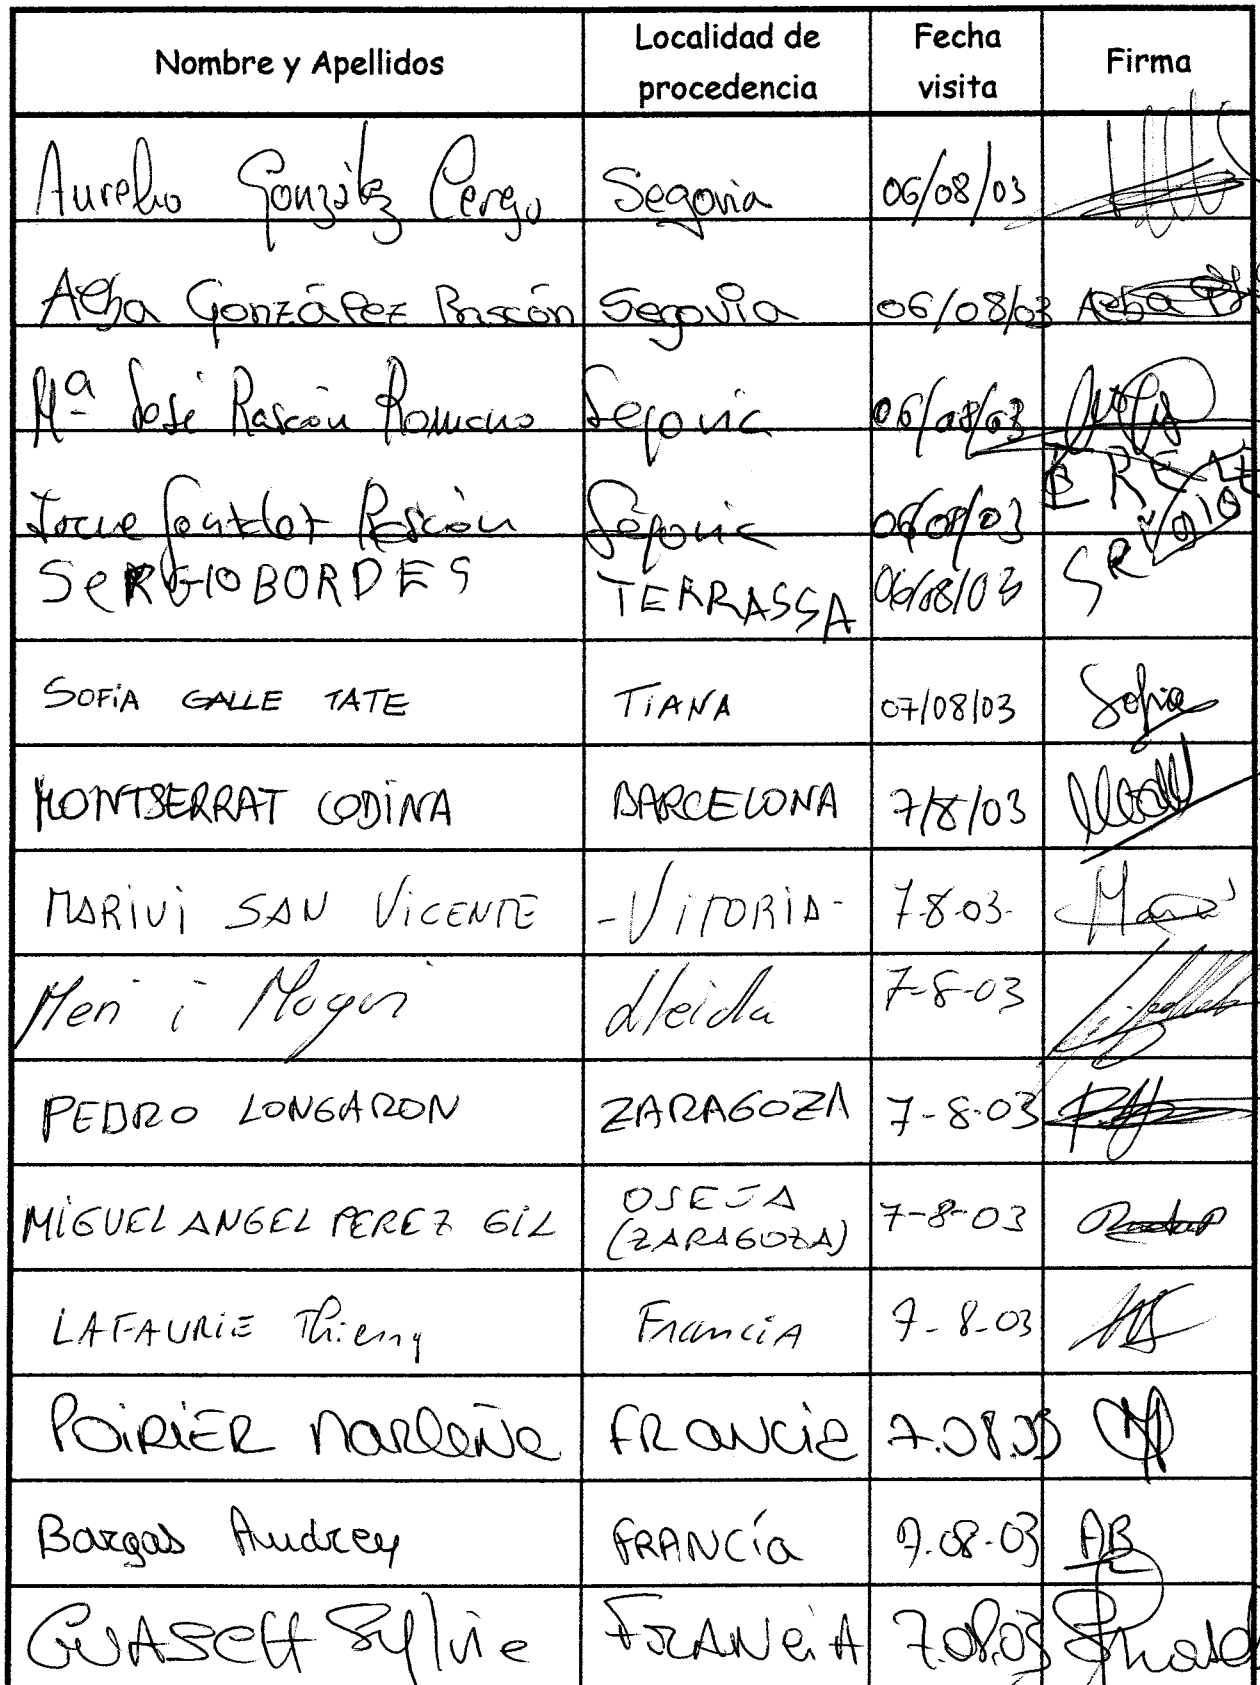 Nombre y Apellidos Localidad de procedencia Fecha visita Firma
Aurelio González Segovia 06/08/03
Alba González Rascón Segovia 06/08/03 Alba
Mª José Rascón Romano Segovia 06/08/03
Rascón Segovia 06/08/03
SERGIO BORDES TERRASSA 06/08/03
SOFÍA GALLE TATE TIANA 07/08/03 Sofia
MONTSERRAT CODINA BARCELONA 7/8/03
MARIVI SAN VICENTE -VITORIA- 7-8-03-
Meri i Magi Lleida 7-8-03
PEDRO LONGARON ZARAGOZA 7-8-03
MIGUEL ANGEL PEREZ GIL OSEJA (ZARAGOZA) 7-8-03
LAFAURIE Thierry Francia 7-8-03
POIRIER Marlène FRANCIE 7.08.03
Bargas Audrey FRANCÍA 7.08.03 AB
GUASCH Sylvie FRANCIA 7.08.03